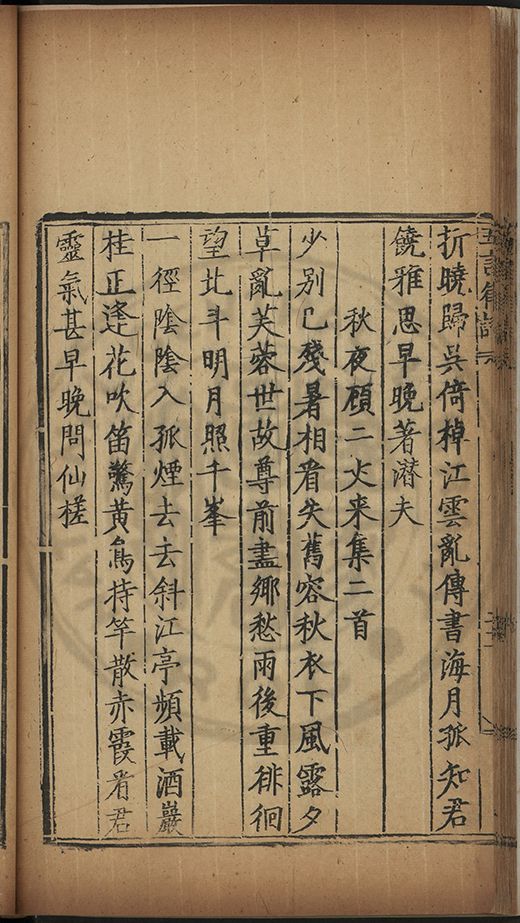 五言律詩
折曉歸吳倚棹江雲亂傳書海月孤知君
饒雅思早晚著潜夫
秋夜顧二丈来集二首
少别已殘暑相看失舊容秋衣下風露夕
草亂芙蓉世故尊前盡鄉愁雨後重徘徊
望北斗明月照千峯
一徑陰陰入孤煙去去斜江亭頻載酒巖
桂正逢花吹笛驚黄鳥持竿散赤霞看君
靈氣甚早晚問仙槎